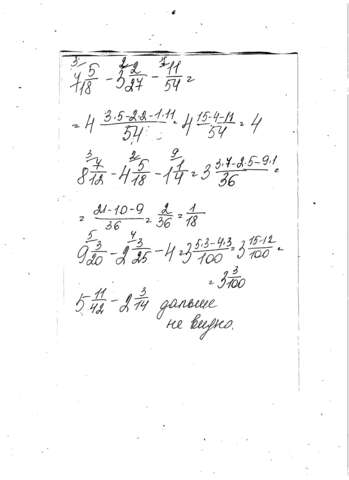 7 5/18 - 3 2/27 - 11/54 =
= 4 (3·5-2·2-1·11)/54 = 4 (15-4-11)/54 = 4
8 7/12 - 4 5/18 - 1 1/4 = 3 (3·7-2·5-9·1)/36 =
= (21-10-9)/36 = 2/36 = 1/18
9 3/20 - 2 3/25 - 4 = 3 (5·3-4·3)/100 = 3 (15-12)/100 =
= 3 3/100
5 11/42 - 2 3/14 дальше
не видно.